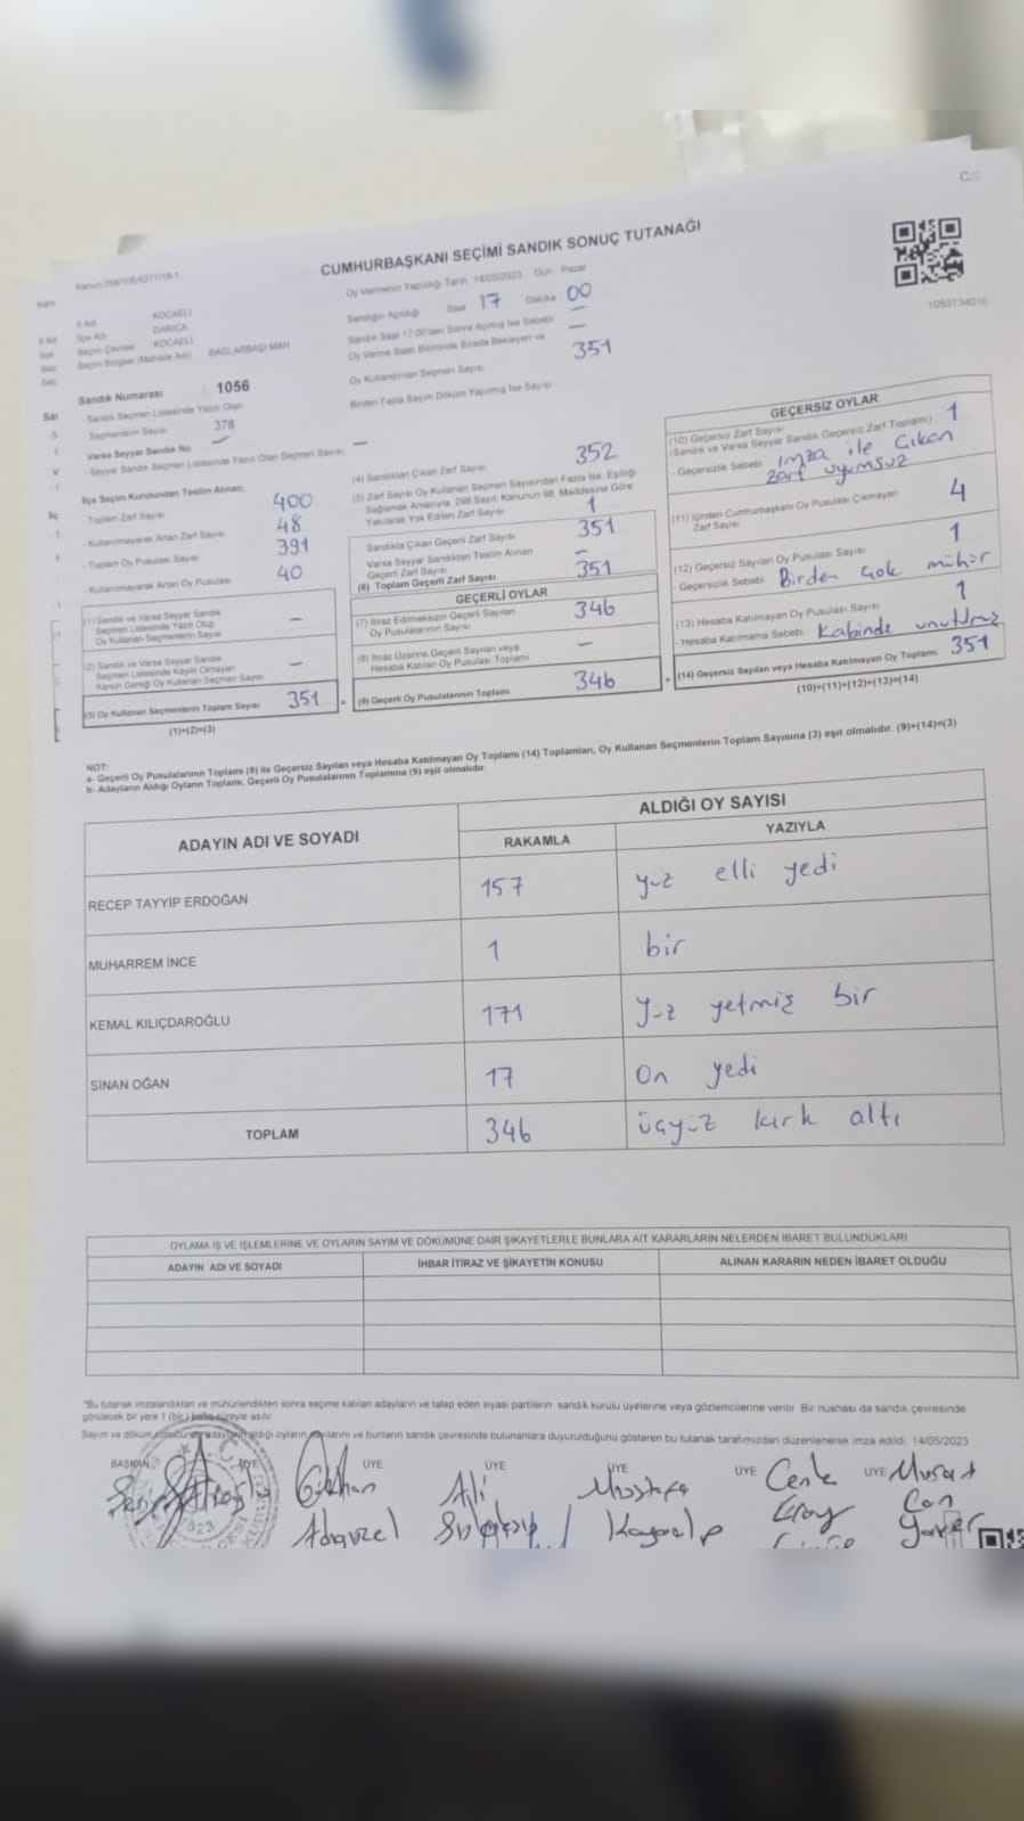 CUMHURBAŞKANI SEÇİMİ SANDIK SONUÇ TUTANAĞI
Oy Vermenin Yapıldığı Tarih 14/05/2023 Gün Pazar
Sandığın Açıldığı Saat 17 Dakika 00
KOCAELİ
DARICA
KOCAELİ
BAĞLARBAŞI MAH
Sandık Numarası 1056
Sandık Seçmen Listesinde Yazılı Olan
Seçmenlerin Sayısı 378
Oy Kullandırılan Seçmen Sayısı 351
Varsa Seyyar Sandık No
İlçe Seçim Kurulundan Teslim Alınan;
Toplam Zarf Sayısı 400
Kullanılmayarak Artan Zarf Sayısı 48
Toplam Oy Pusulası Sayısı 391
Kullanılmayarak Artan Oy Pusulası 40
(1) Sandık ve Varsa Seyyar Sandık
Seçmen Listesinde Yazılı Olup
Oy Kullanan Seçmenlerin Sayısı –
(2) Sandık ve Varsa Seyyar Sandık
Seçmen Listesinde Kayıtlı Olmayan
Kanun Gereği Oy Kullanan Seçmen Sayısı –
(3) Oy Kullanan Seçmenlerin Toplam Sayısı 351
(1)+(2)=(3)
(4) Sandıktan Çıkan Zarf Sayısı 352
(5) Zarf Sayısı Oy Kullanan Seçmen Sayısından Fazla İse, Eşitliği
Sağlamak Amacıyla, 298 Sayılı Kanunun 98. Maddesine Göre
Yakılarak Yok Edilen Zarf Sayısı 1
Sandıkta Çıkan Geçerli Zarf Sayısı 351
Varsa Seyyar Sandıktan Teslim Alınan
Geçerli Zarf Sayısı –
(6) Toplam Geçerli Zarf Sayısı 351
GEÇERLİ OYLAR
(7) İtiraz Edilmeksizin Geçerli Sayılan
Oy Pusulalarının Sayısı 346
(8) İtiraz Üzerine Geçerli Sayılan veya
Hesaba Katılan Oy Pusulası Toplamı –
(9) Geçerli Oy Pusulalarının Toplamı 346
GEÇERSİZ OYLAR
(10) Geçersiz Zarf Sayısı
(Sandık ve Varsa Seyyar Sandık Geçersiz Zarf Toplamı) 1
Geçersizlik Sebebi imza ile Çıkan
zarf uyumsuz
(11) İçinden Cumhurbaşkanı Oy Pusulası Çıkmayan
Zarf Sayısı 4
(12) Geçersiz Sayılan Oy Pusulası Sayısı 1
Geçersizlik Sebebi Birden çok mühür
(13) Hesaba Katılmayan Oy Pusulası Sayısı 1
Hesaba Katılmama Sebebi Kabinde
(14) Geçersiz Sayılan veya Hesaba Katılmayan Oy Toplamı 351
(10)+(11)+(12)+(13)=(14)
NOT:
a- Geçerli Oy Pusulalarının Toplamı (9) ile Geçersiz Sayılan veya Hesaba Katılmayan Oy Toplamı (14) Toplamları, Oy Kullanan Seçmenlerin Toplam Sayısına (3) eşit olmalıdır. (9)+(14)=(3)
b- Adayların Aldığı Oyların Toplamı, Geçerli Oy Pusulalarının Toplamına (9) eşit olmalıdır.
ADAYIN ADI VE SOYADI
ALDIĞI OY SAYISI
RAKAMLA YAZIYLA
RECEP TAYYİP ERDOĞAN 157 yüz elli yedi
MUHARREM İNCE 1 bir
KEMAL KILIÇDAROĞLU 171 yüz yetmiş bir
SİNAN OĞAN 17 On yedi
TOPLAM 346 üçyüz kırk altı
OYLAMA İŞ VE İŞLEMLERİNE VE OYLARIN SAYIM VE DÖKÜMÜNE DAİR ŞİKAYETLERLE BUNLARA AİT KARARLARIN NELERDEN İBARET BULUNDUKLARI
ADAYIN ADI VE SOYADI İHBAR İTİRAZ VE ŞİKAYETİN KONUSU ALINAN KARARIN NEDEN İBARET OLDUĞU
"Bu tutanak imzalandıktan ve mühürlendikten sonra seçime katılan adayların ve talep eden siyasi partilerin sandık kurulu üyelerine veya gözlemcilerine verilir. Bir nüshası da sandık çevresinde
görülecek bir yere 1 (bir) hafta süreyle asılır.
Sayım ve döküm adayların aldığı oyların sayılarını ve bunların sandık çevresinde bulunanlara duyurulduğunu gösteren bu tutanak tarafımızdan düzenlenerek imza edildi. 14/05/2023
BAŞKAN ÜYE ÜYE ÜYE ÜYE ÜYE ÜYE
Gökhan Ali Mustafa Cenk Murat
Adıgüzel Kayaalp Eray Can